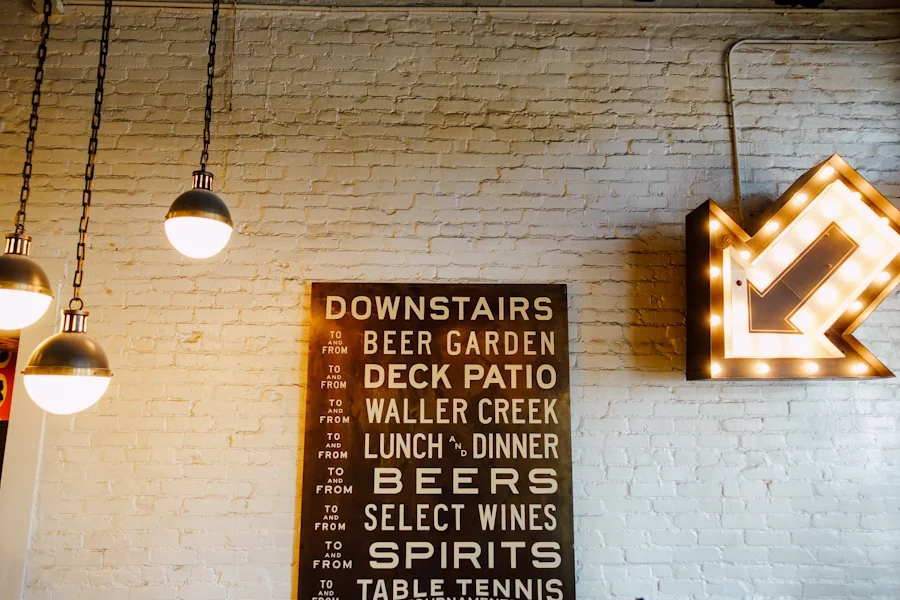 DOWNSTAIRS
TO AND FROM BEER GARDEN
TO AND FROM DECK PATIO
TO AND FROM WALLER CREEK
TO AND FROM LUNCH AND DINNER
TO AND FROM BEERS
TO AND FROM SELECT WINES
TO AND FROM SPIRITS
TO AND FROM TABLE TENNIS